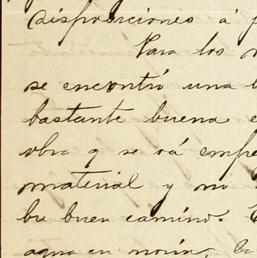 disposiciones á
Para los
se encontró una
bastante buena e
obra q se vá empre
material y no
bu buen camino.
agua en noria, la